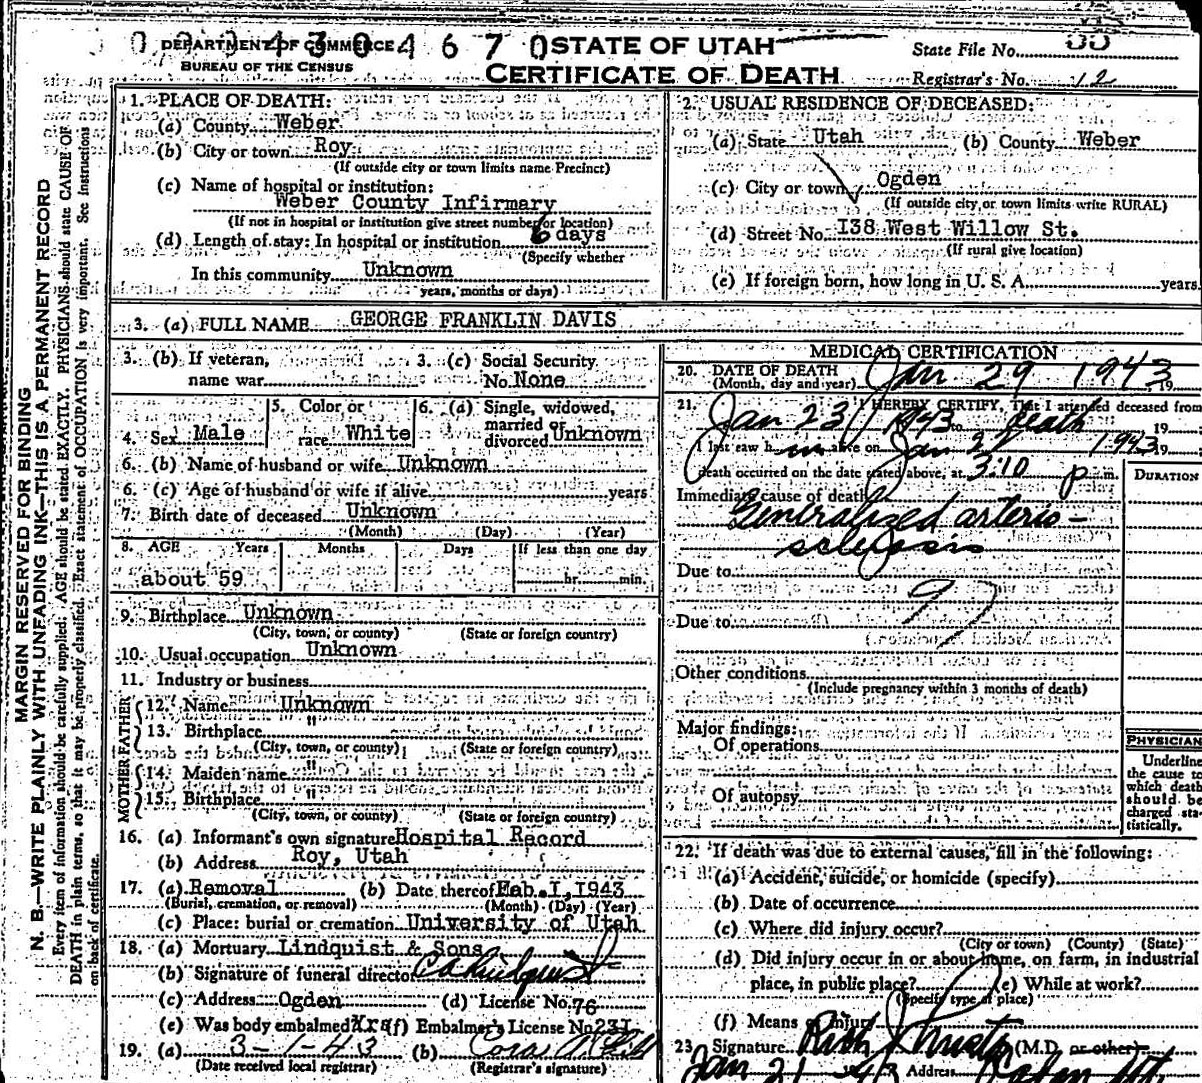 DEPARTMENT OF COMMERCE
BUREAU OF THE CENSUS
STATE OF UTAH
CERTIFICATE OF DEATH
State File No. 33
Registrar's No. 12
MARGIN RESERVED FOR BINDING
N. B.—WRITE PLAINLY WITH UNFADING INK—THIS IS A PERMANENT RECORD
Every item of information should be carefully supplied. AGE should be stated EXACTLY. PHYSICIANS should state CAUSE OF
DEATH in plain terms, so that it may be properly classified. Exact statement of OCCUPATION is very important. See Instructions
on back of certificate.
1. PLACE OF DEATH:
(a) County Weber
(b) City or town Roy
(If outside city or town limits name Precinct)
(c) Name of hospital or institution:
Weber County Infirmary
(If not in hospital or institution give street number or location)
(d) Length of stay: In hospital or institution 6 days
(Specify whether
In this community Unknown
years, months or days)
2. USUAL RESIDENCE OF DECEASED:
(a) State Utah (b) County Weber
(c) City or town Ogden
(If outside city or town limits write RURAL)
(d) Street No. I38 West Willow St.
(If rural give location)
(e) If foreign born, how long in U. S. A. years
3. (a) FULL NAME GEORGE FRANKLIN DAVIS
3. (b) If veteran, name war
3. (c) Social Security No. None
4. Sex Male
5. Color or race White
6. (a) Single, widowed, married or divorced Unknown
6. (b) Name of husband or wife Unknown
6. (c) Age of husband or wife if alive years
7. Birth date of deceased Unknown
(Month) (Day) (Year)
8. AGE Years Months Days If less than one day
about 59 hr. min.
9. Birthplace Unknown
(City, town, or county) (State or foreign country)
10. Usual occupation Unknown
11. Industry or business
FATHER
12. Name Unknown
13. Birthplace "
(City, town, or county) (State or foreign country)
MOTHER
14. Maiden name "
15. Birthplace "
(City, town, or county) (State or foreign country)
16. (a) Informant's own signature Hospital Record
(b) Address Roy, Utah
17. (a) Removal (b) Date thereof Feb. I, I943
(Burial, cremation, or removal) (Month) (Day) (Year)
(c) Place: burial or cremation University of Utah
18. (a) Mortuary Lindquist & Sons
(b) Signature of funeral director C A Lindquist
(c) Address Ogden (d) License No. 76
(e) Was body embalmed (f) Embalmer's License No. 23I
19. (a) 3-1-43 (b) Cora A.
(Date received local registrar) (Registrar's signature)
MEDICAL CERTIFICATION
20. DATE OF DEATH
(Month, day and year) Jan 29 1943 19
21. I HEREBY CERTIFY, That I attended deceased from
Jan 23 1943 to death 19
I last saw h im alive on Jan 1943 19
death occurred on the date stated above, at 3:10 p m.
DURATION
Immediate cause of death
Generalized arterio-
sclerosis
Due to
97
Due to
Other conditions
(Include pregnancy within 3 months of death)
Major findings:
Of operations
Of autopsy
PHYSICIAN
Underline
the cause to
which death
should be
charged sta-
tistically.
22. If death was due to external causes, fill in the following:
(a) Accident, suicide, or homicide (specify)
(b) Date of occurrence
(c) Where did injury occur?
(City or town) (County) (State)
(d) Did injury occur in or about home, on farm, in industrial
place, in public place? (e) While at work?
(Specify type of place)
(f) Means of injury
23. Signature (M.D. or other)
Jan Address